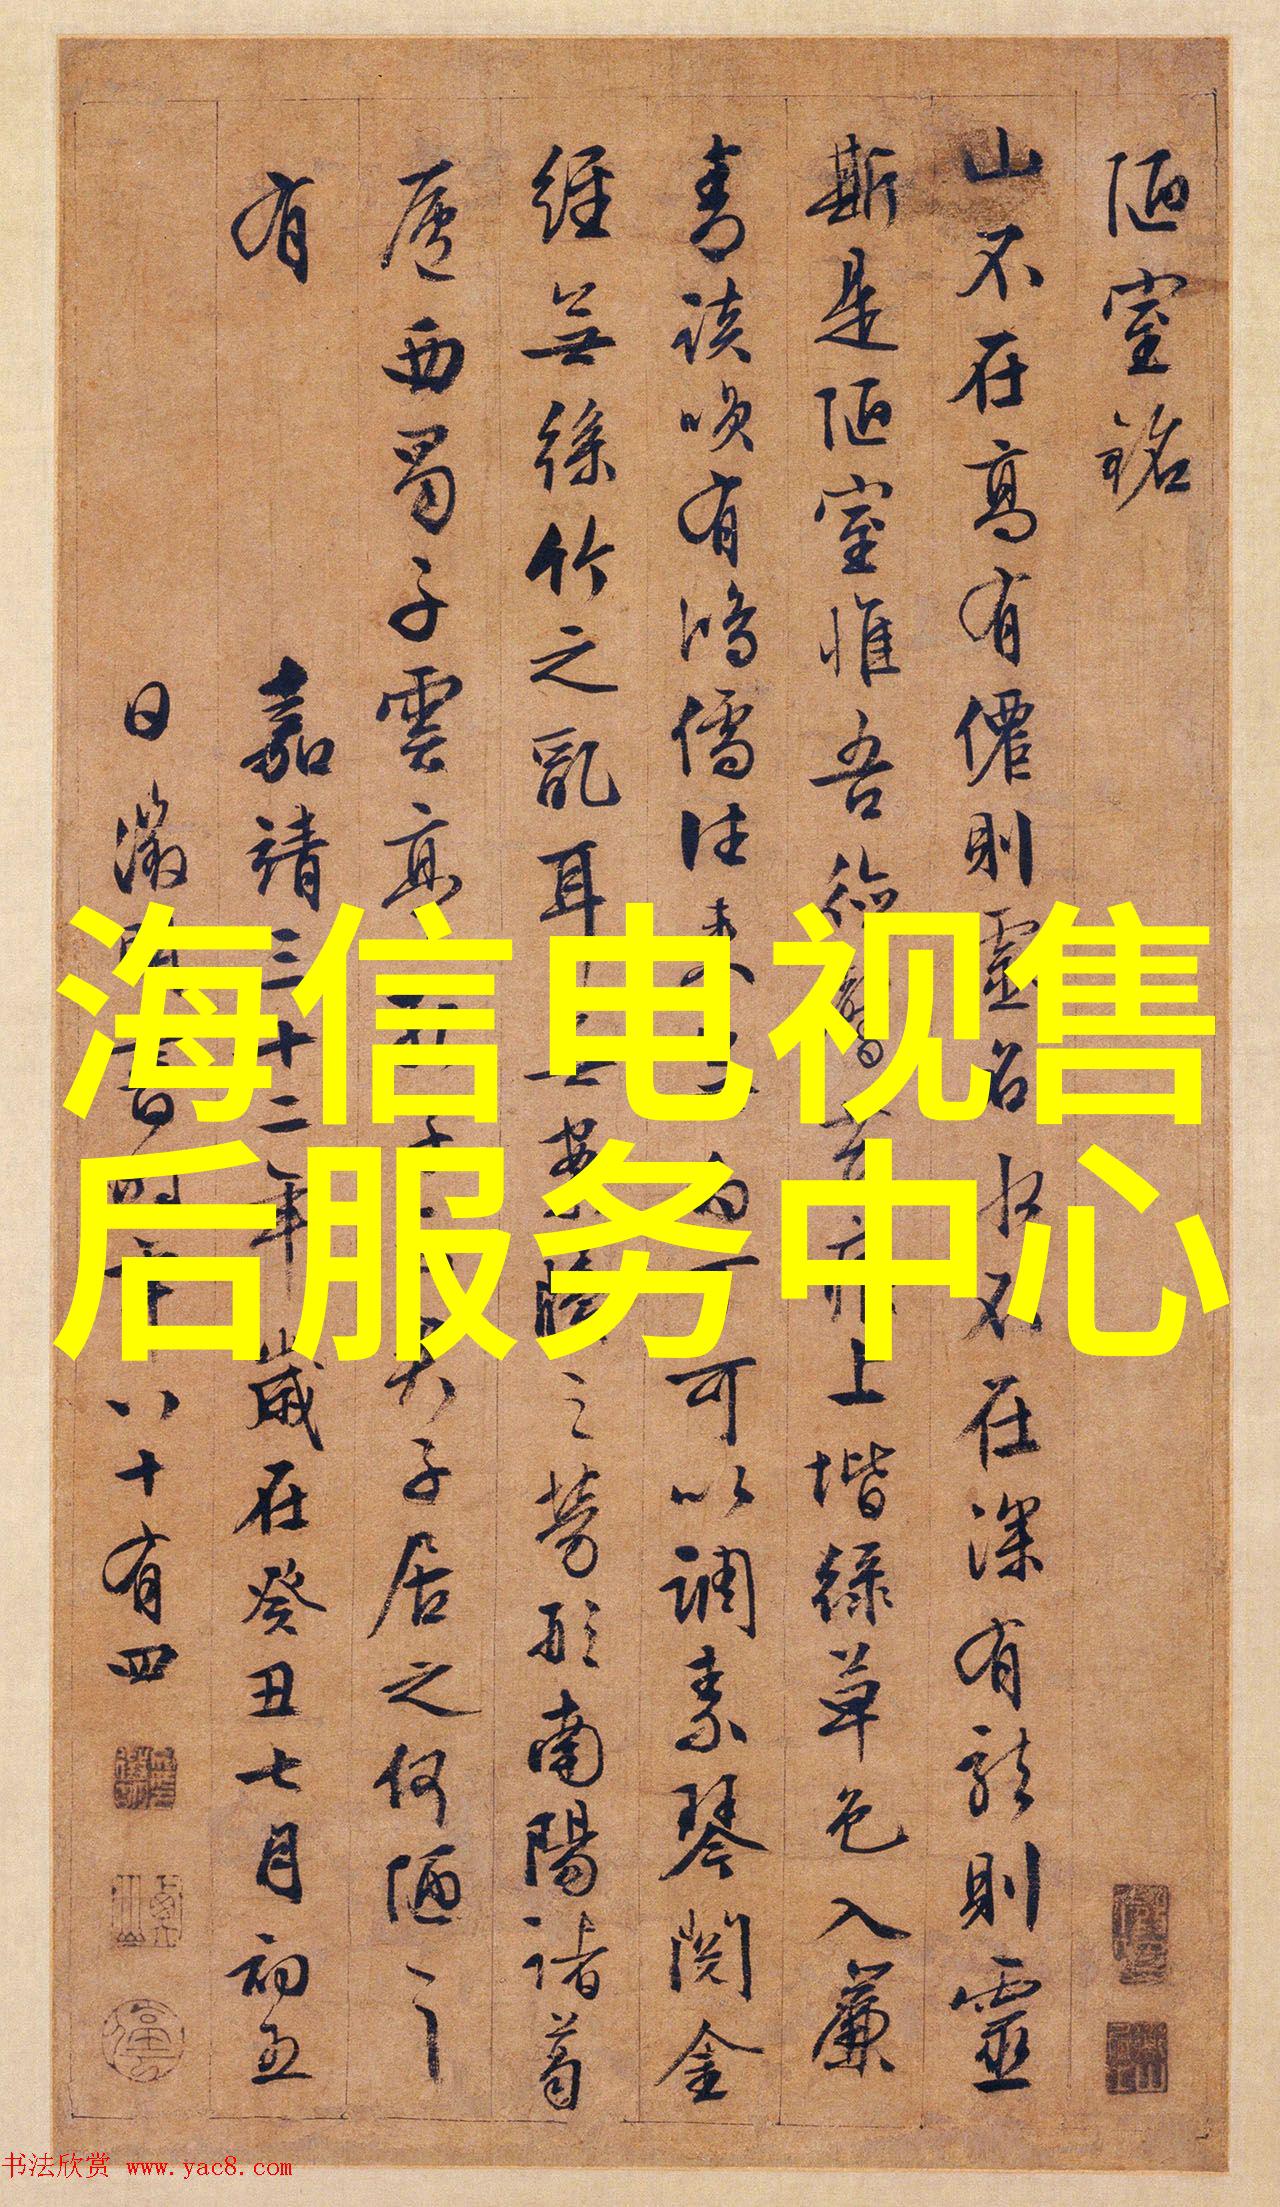 陋室銘
山不在高有僊則靈名水不在深有龍則靈
斯是陋室惟吾德馨苔痕上堦綠草色入簾
青談咲有鴻儒往来無白丁可以調素琴閱金
經無絲竹之亂耳無案牘之勞形南陽諸葛
廬西蜀子雲亭孔子居之何陋之
有
嘉靖三十二年歲在癸丑七月初五
日徵明書時年八十有四
海信电视售
后服务中心
书法欣赏 www.yac8.com